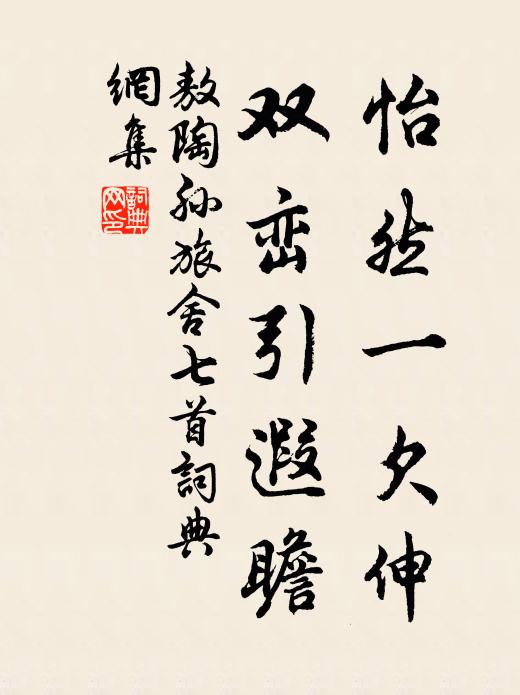 怡然一欠伸
双峦引遐瞻
敖陶孙旅舍七首詞典
網集
詞典
网印